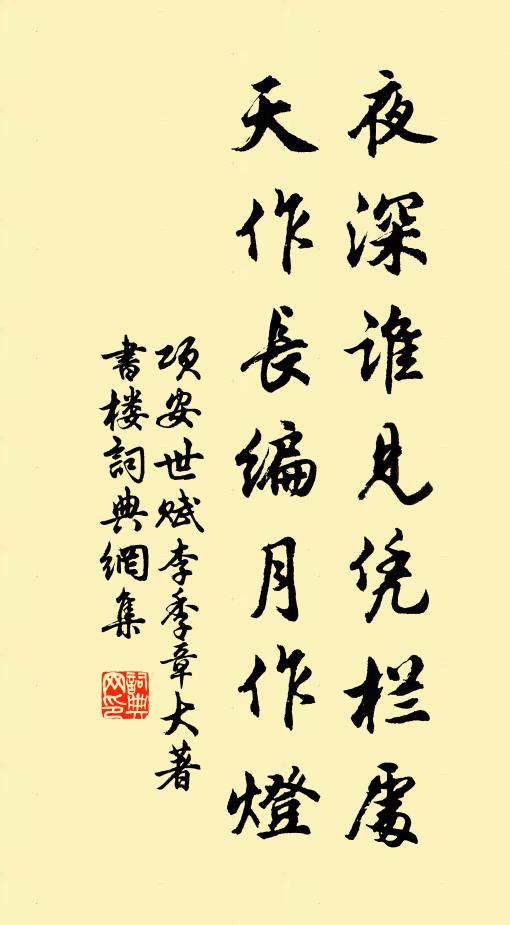 夜深谁見凭栏處
天作長编月作燈
项安世赋李季章大著
書楼詞典網集
詞典
网印